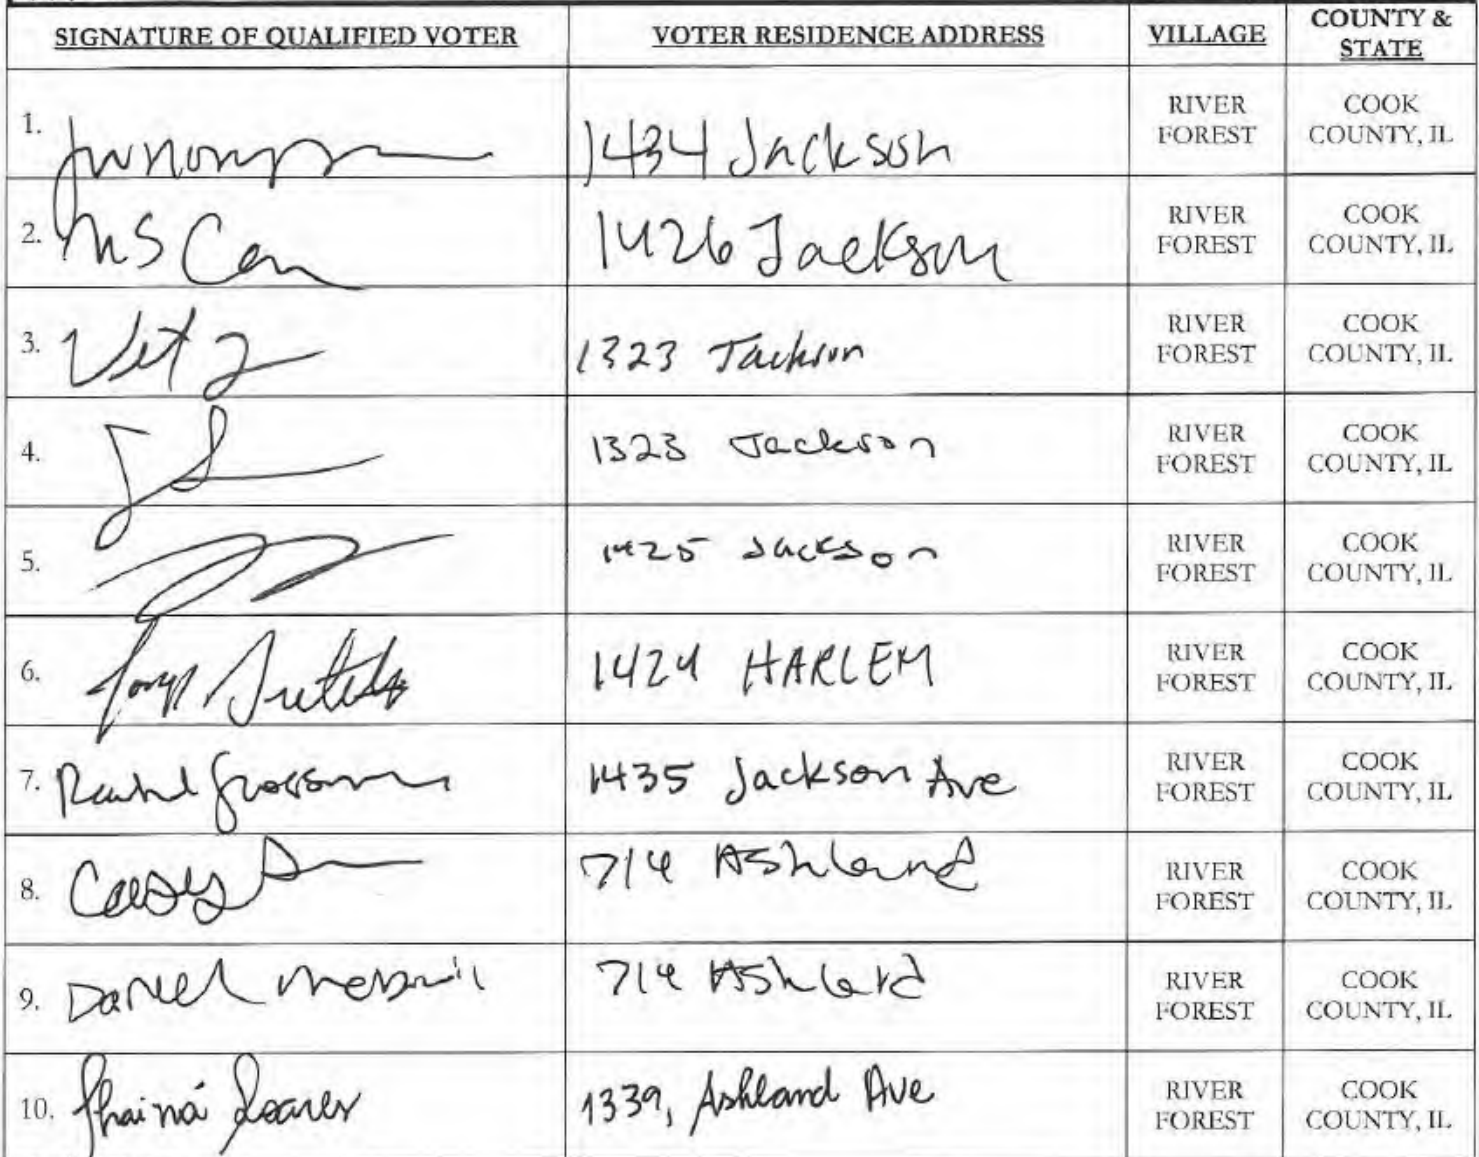 SIGNATURE OF QUALIFIED VOTER VOTER RESIDENCE ADDRESS VILLAGE COUNTY & STATE
1. 1434 Jackson RIVER FOREST COOK COUNTY, IL
2. 1426 Jackson RIVER FOREST COOK COUNTY, IL
3. 1323 Jackson RIVER FOREST COOK COUNTY, IL
4. 1323 Jackson RIVER FOREST COOK COUNTY, IL
5. 1425 Jackson RIVER FOREST COOK COUNTY, IL
6. 1424 HARLEM RIVER FOREST COOK COUNTY, IL
7. Rachel Grossman 1435 Jackson Ave RIVER FOREST COOK COUNTY, IL
8. Casey 714 Ashland RIVER FOREST COOK COUNTY, IL
9. Daniel 714 Ashland RIVER FOREST COOK COUNTY, IL
10. Thainá Soares 1339, Ashland Ave RIVER FOREST COOK COUNTY, IL